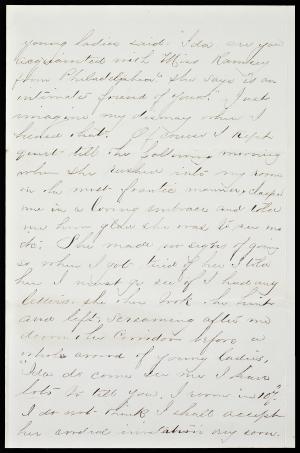 young ladies said. "Ida are you
acquainted with Miss Ramsey
from Philadelphia" she says "is an
intimate friend of yours." Just
imagine my dismay when I
heard that. Of course I kept
quiet till the following morning
when she rushed into my room
in the most frantic manner, clasped
me in a loving embrace and told
me how glad she was to see me
&c. She made no signs of going
so when I got tired of her I told
her I must go see if I had any
letters. she then took the hint
and left, screaming after me
down the Corridor before a
whole crowd of young ladies,
"Ida do come see me I have
lots to tell you. I room in 107"
I do not think I shall accept
her cordial invitation very soon.